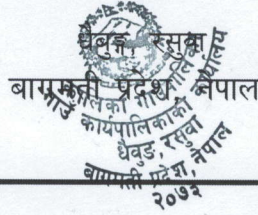 धैबुङ्ग, रसुवा
बागमती प्रदेश, नेपाल
गाउँ कार्यपालिकाको कार्यालय
धैवुङ, रसुवा
बागमती प्रदेश, नेपाल
२०७३